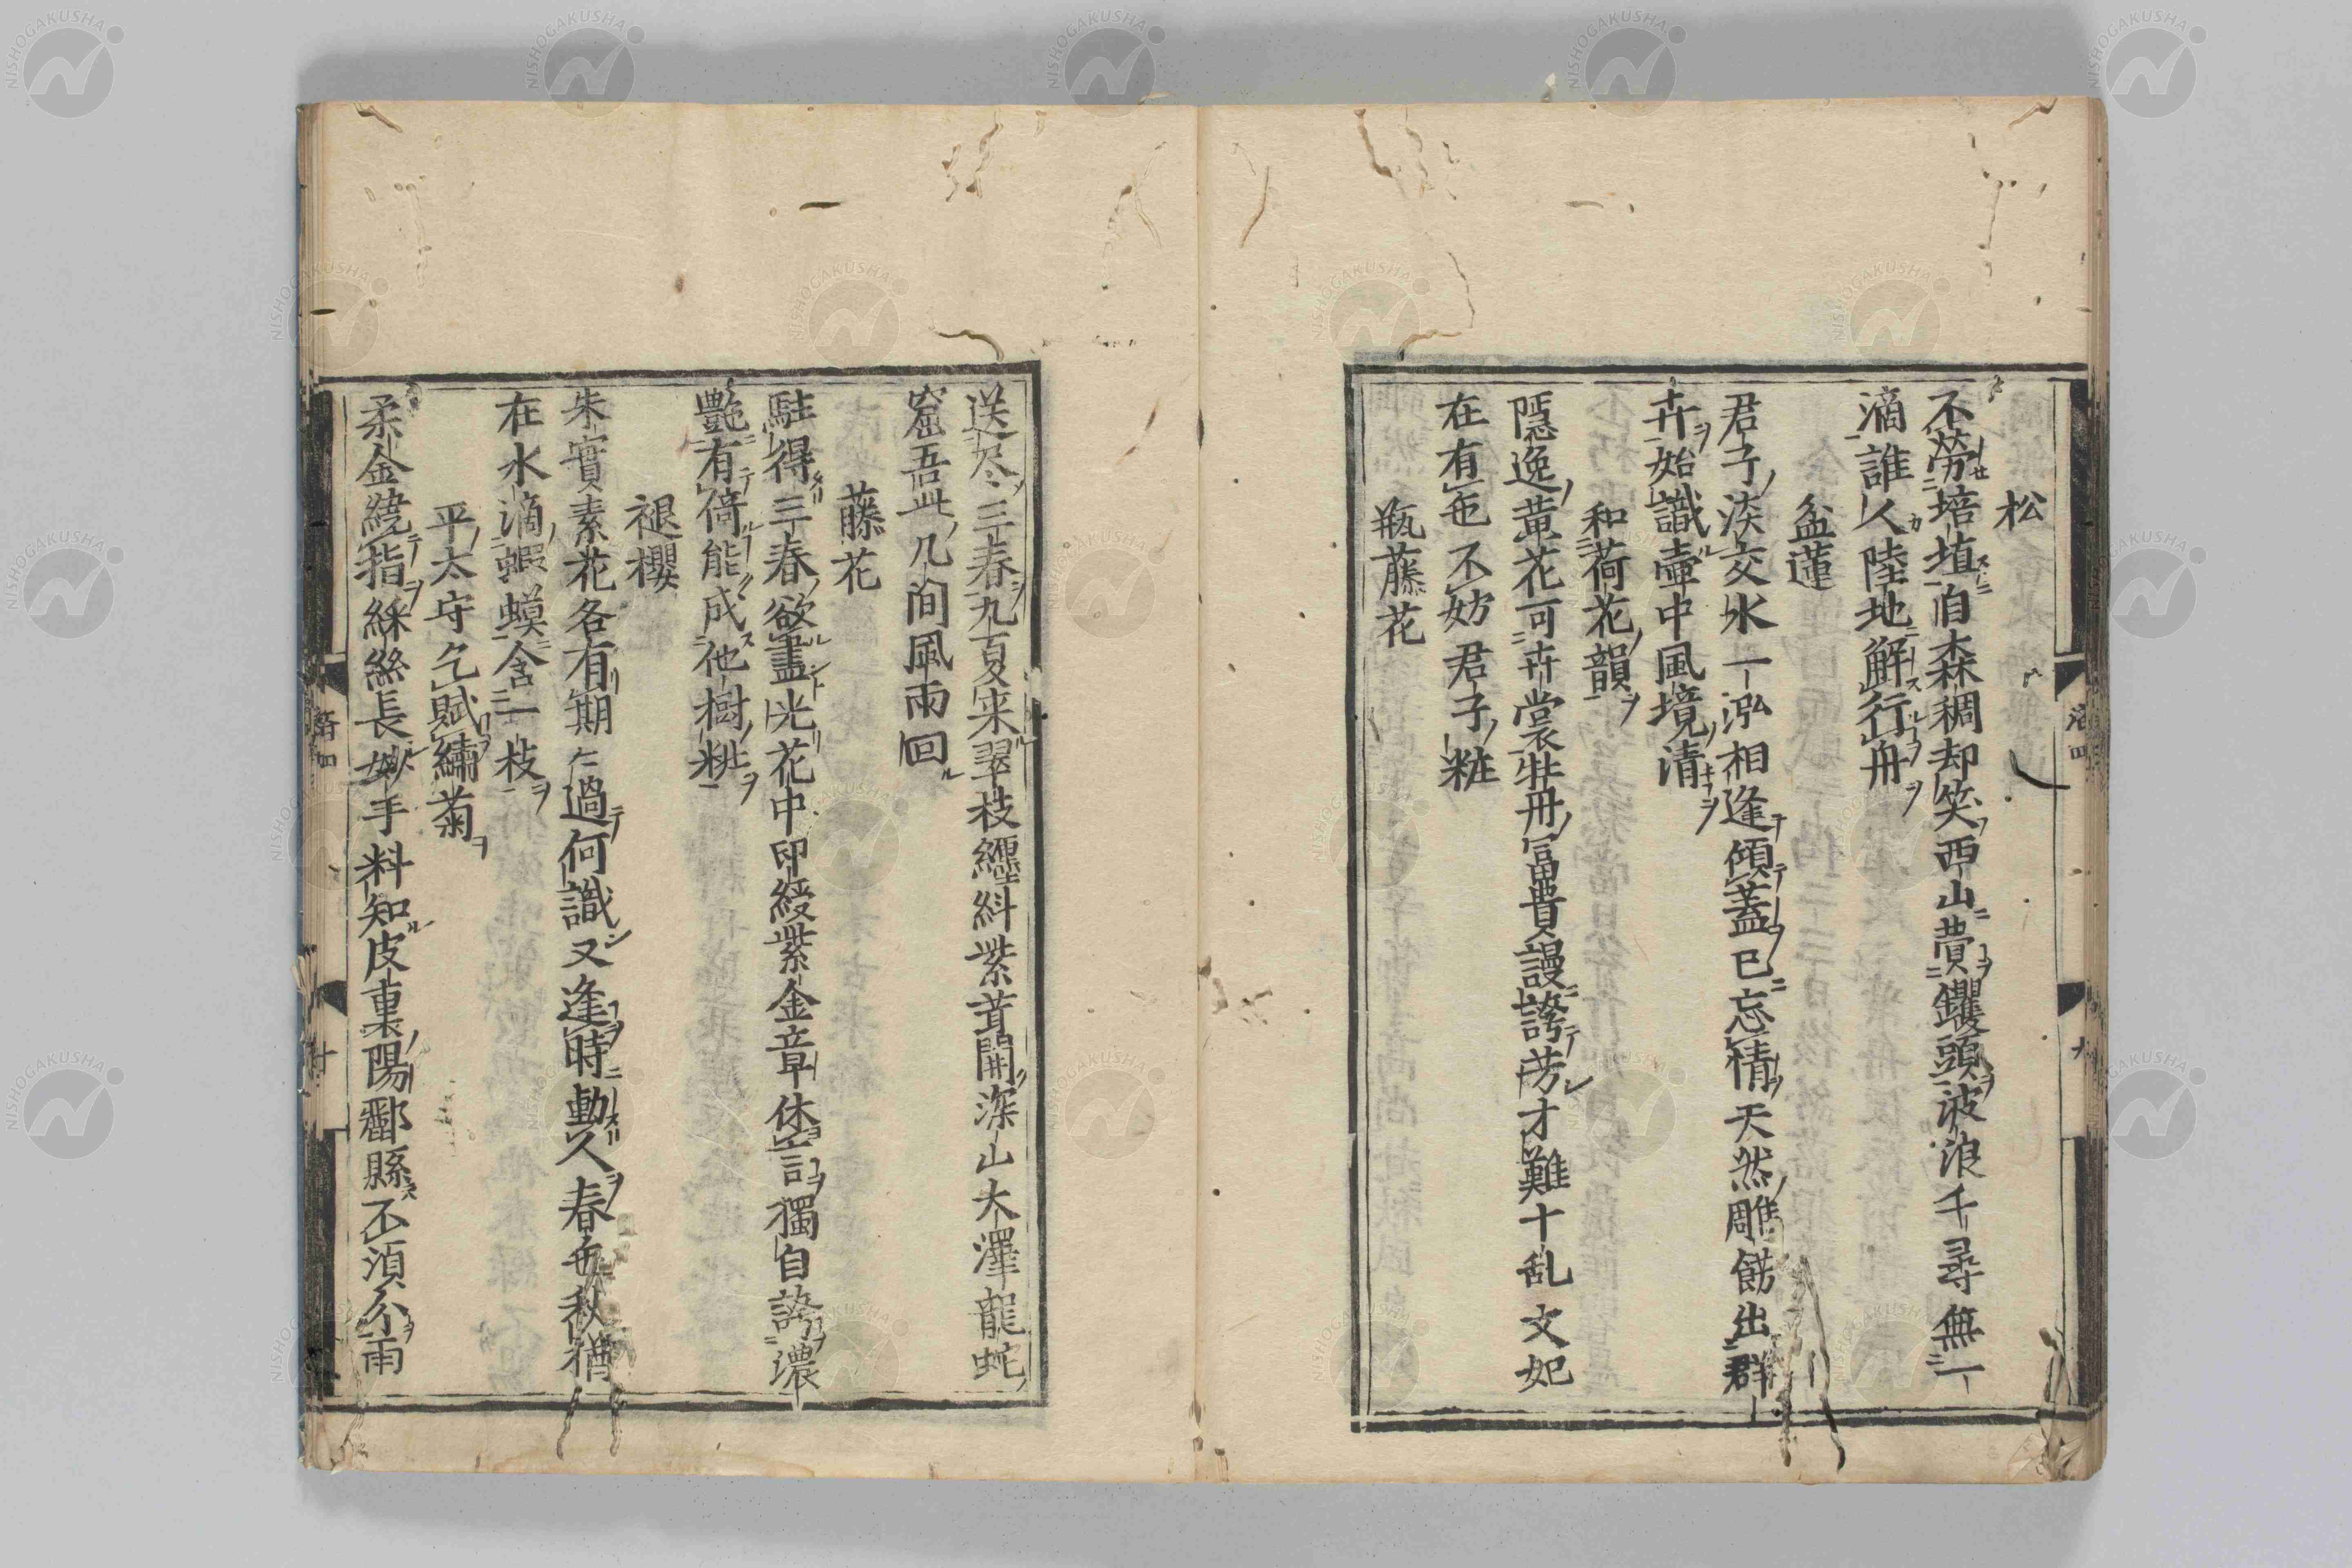 松
不勞培埴自森稠却笑西山費钁頭波浪千尋無一
滴誰人陸地解行舟
盆蓮
君子淡交水一泓相逢傾蓋已忘情天然雕餝出群
卉始識壷中風境清
和荷花韻
隱逸黄花可卉裳牡丹冨貴謾誇芳才難十乱文妃
在有色不妨君子粧
瓶藤花
送尽三春九夏来翠枝纒糾紫茸開深山大澤龍蛇
窟吾此几間風雨回
藤花
駐得三春欲盡光花中印綬紫金章休言獨自誇濃
艶有倚能成他樹粧
褪櫻
朱實素花各有期仁過何識又逢時動人春色秋猶
在水滴蝦蟆含一枝
平太守乞賦繡菊
柔金繞指綵絲長妙手料知皮裏陽酈縣不湏尒雨